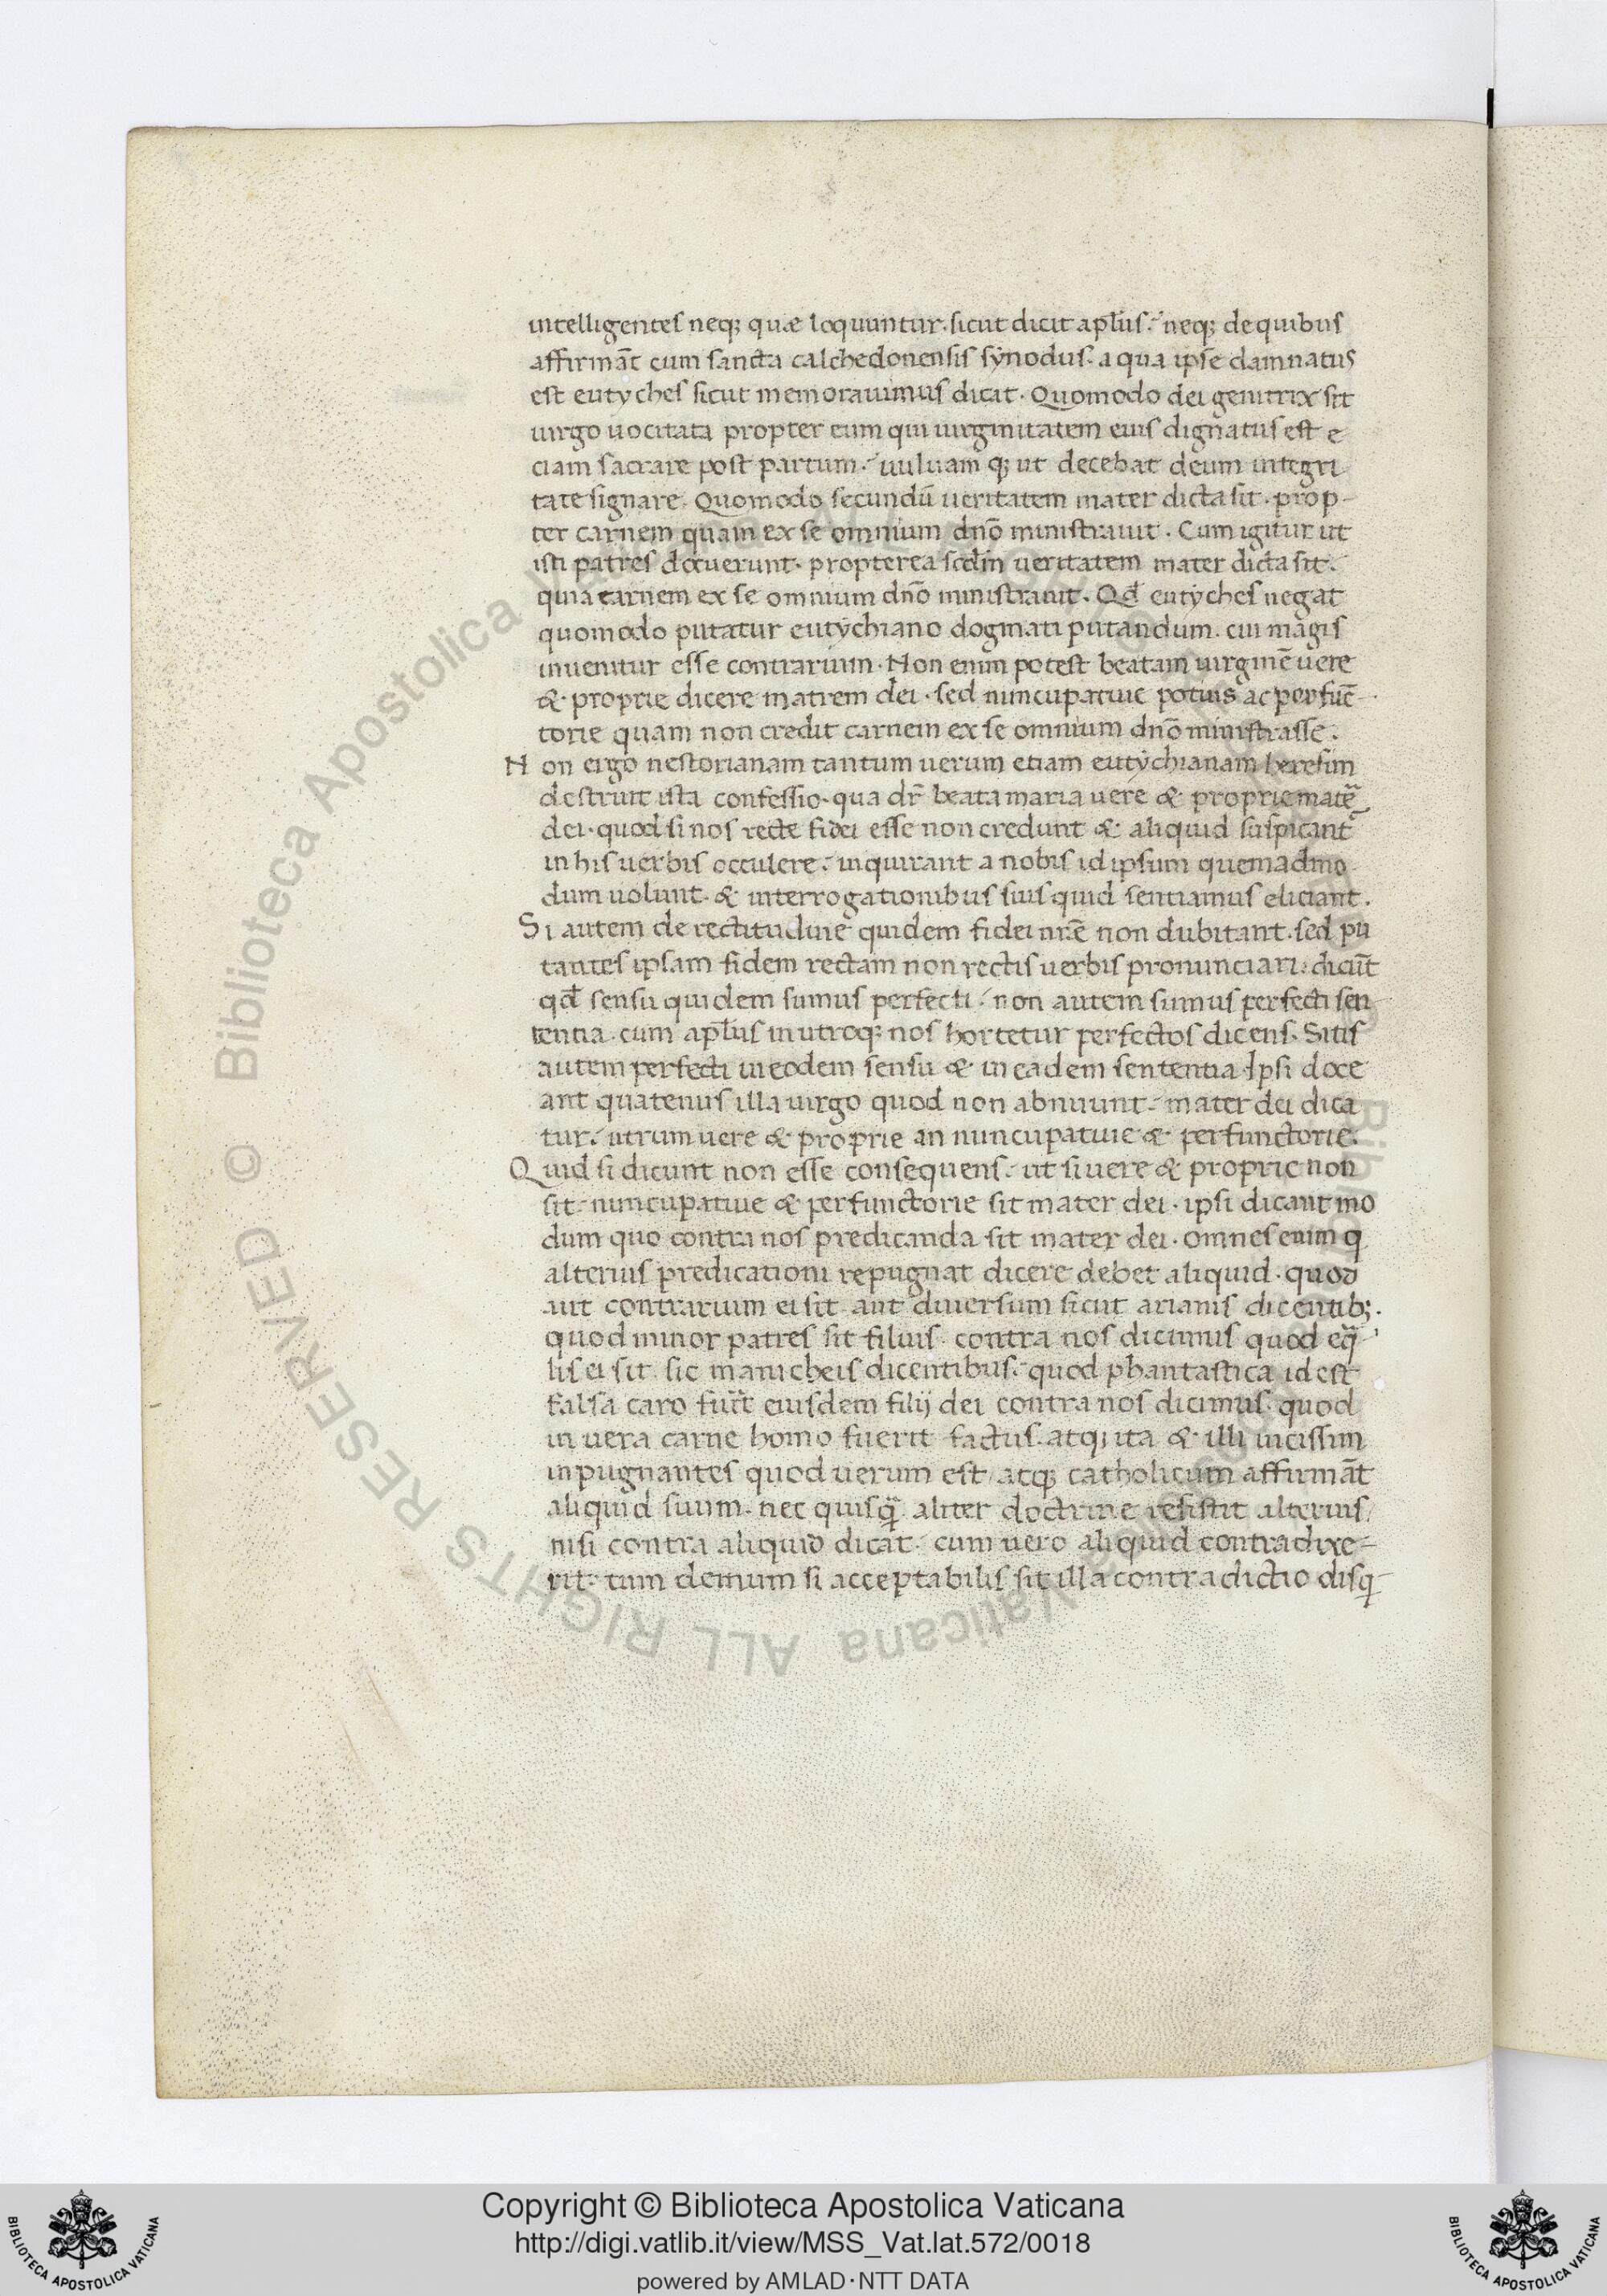 intelligentes neq; quæ loquuntur. sicut dicit apl̄us. neq; de quibus
affirmāt cum sancta calchedonensis synodus. a qua ipse damnatus
est eutyches sicut memorauimus dicat. Quomodo dei genitrix sit
uirgo uocitata propter eum qui uirginitatem eius dignatus est e
ciam sacrare post partum. uuluam q; ut decebat deum integri
tate signare. Quomodo secundū ueritatem mater dicta sit. prop-
ter carnem quam ex se omnium dn̄o ministrauit. Cum igitur ut
isti patres docuerunt. propterea scd̄m ueritatem mater dicta sit.
quia carnem ex se omnium dn̄o ministrauit. Qd̄ eutyches negat
quomodo putatur eutychiano dogmati putandum. cui magis
inuenitur esse contrarium. Non enim potest beatam uirginē uere
& proprie dicere matrem dei. sed nuncupatiue potius ac perfūc-
torie quam non credit carnem ex se omnium dn̄o ministrasse.
Non ergo nestorianam tantum uerum etiam eutychianam heresim
destruit ista confessio. qua dr̄ beata maria uere & proprie mat̄
dei. quod si nos recte fidei esse non credunt & aliquid suspicant̄
in his uerbis occulere. inquirant a nobis id ipsum quemadmo
dum uolunt. & interrogationibus suis quid sentiamus eliciant.
Si autem de rectitudine quidem fidei nr̄e non dubitant. sed pu
tantes ipsam fidem rectam non rectis uerbis pronunciari. dicūt
qd̄ sensu quidem sumus perfecti. non autem sumus perfecti sen-
tentia. cum apl̄us in utroq; nos hortetur perfectos dicens. Sitis
autem perfecti in eodem sensu & in eadem sententia. Ipsi doce
ant quatenus illa uirgo quod non abnuunt. mater dei dica
tur. utrum uere & proprie an nuncupatiue & perfunctorie.
Quid si dicunt non esse consequens. ut si uere & proprie non
sit. nuncupatiue & perfunctorie sit mater dei. ipsi dicant mo
dum quo contra nos predicanda sit mater dei. omnes enim q
alterius predicationi repugnat dicere debet aliquid. quod
aut contrarium ei sit aut diuersum sicut arianis dicentib;.
quod minor patres sit filius contra nos dicimus quod eq̄-
lis ei sit. sic manicheis dicentibus. quod phantastica id est
falsa caro fuit eiusdem filij dei contra nos dicimus. quod
in uera carne homo fuerit factus. atq; ita & illi uicissim
inpugnantes quod uerum est atq; catholicum affirmāt
aliquid suum. nec quisq̄ aliter doctrine resistit alterius
nisi contra aliquid dicat. cum uero aliquid contradixe-
rit. tum demum si acceptabilis sit illa contradictio disq̄-
Copyright © Biblioteca Apostolica Vaticana
http://digi.vatlib.it/view/MSS_Vat.lat.572/0018
powered by AMLAD·NTT DATA
BIBLIOTECA APOSTOLICA VATICANA
BIBLIOTECA APOSTOLICA VATICANA
© Biblioteca Apostolica Vaticana ALL RIGHTS RESERVED